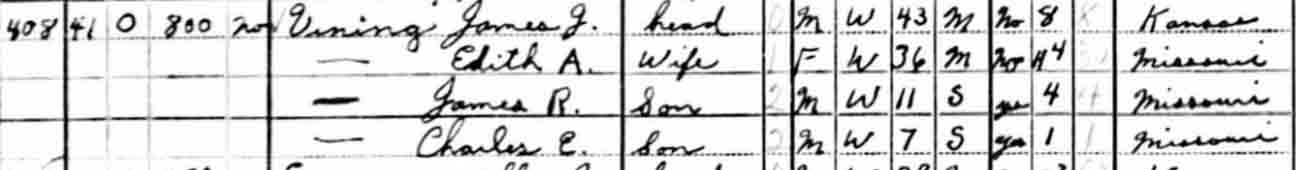 408 41 O 800 no Vining James J. head 0 M W 43 M No 8 8 Kansas
— Edith A. Wife 1 F W 36 M No H4 30 Missouri
— James R. Son 2 M W 11 S yes 4 4 Missouri
— Charles E. Son 2 M W 7 S yes 1 1 Missouri